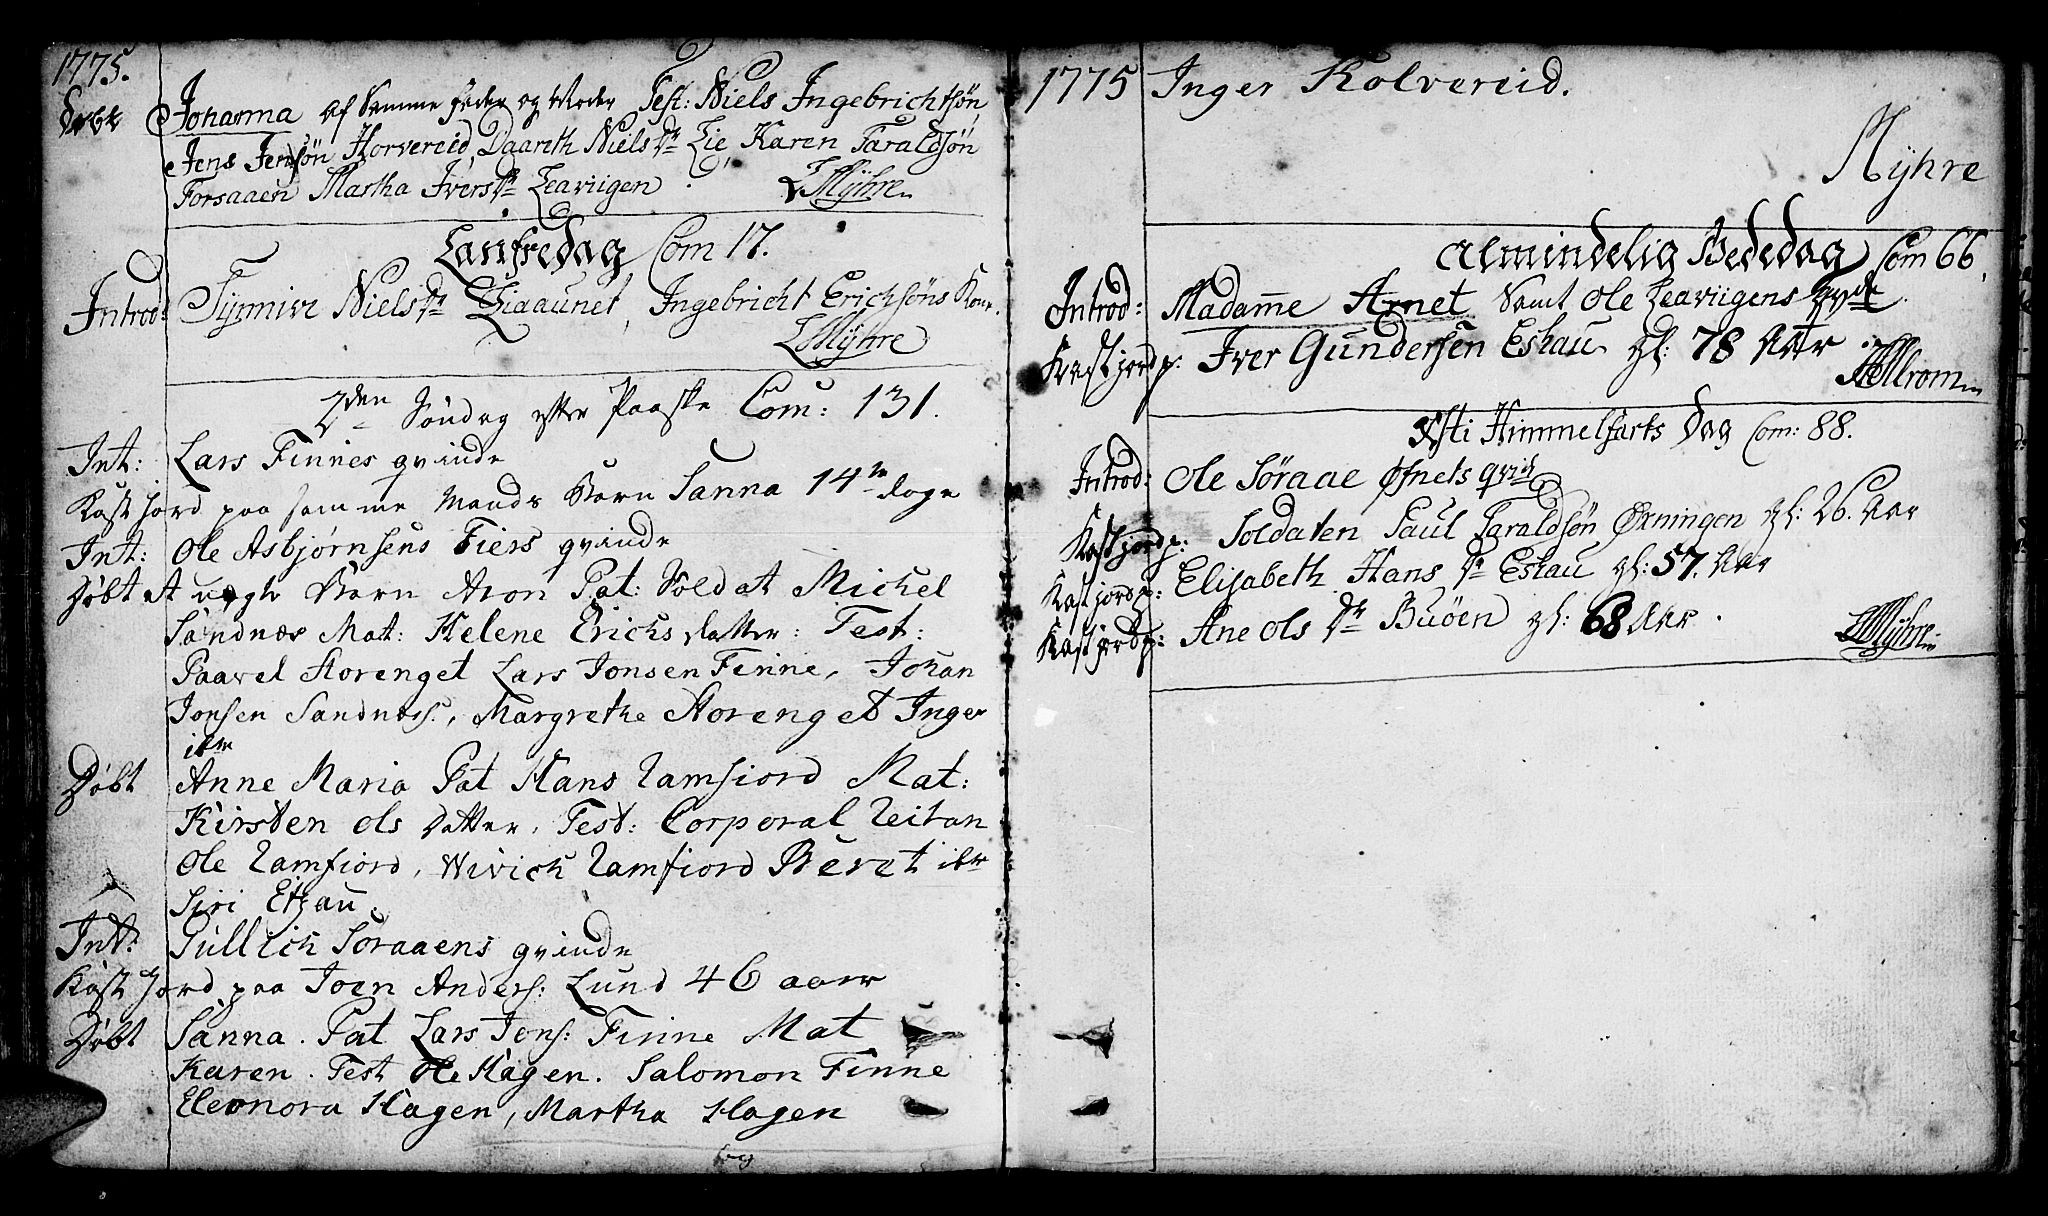 1775.
Døbt Johanna af Samme Fader og Moder Test: Niels Ingebrichtsøn
Jens Jensøn Horvereid, Daareth Niels Dr Lie Karen Taraldsøn
Forsaaen Martha Ivers Dr Leaviigen. LMÿhre
Lanfredag Com 17.
Introd: Niels Dr Liaaunet, Ingebricht Erichsøns Kone.
LMÿhre
2den Søndag efter Paaske Com: 131.
Int: Lars Finnes qvinde
Kast Jord paa samme Mands Barn Sanna 14 dage
Int: Ole Asbjørnsens Fiers qvinde
Døbt et uægte Barn Aron Pat: Soldat Michel
Sandnes Mat: Helene Erichs datter: Test:
Paavel Storenget Lars Jonsen Finne, Johan
Jonsen Sandnes, Margrethe Storenget Inger
ibm
Døbt Anne Maria Pat Hans Ramfiord Mat:
Kirsten ols datter, Test: Corporal Reitan
Ole Ramfiord, Wivich Ramfiord Beret ibm
Siri Etzau.
Int: Gullich Soraaens qvinde
Kast Jord paa Joen Anders: Lund 46 aar
Døbt Sanna. Pat Lars Jons: Finne Mat
Karen. Test Ole Hagen. Salomon Finne
Eleonora Hagen, Martha Hagen
og
1775 Inger Kolvereid.
Mÿhre
Almindelig Bededag Com 66.
Introd: Madame Arnet Samt Ole Leaviigens
Kast jord p: Iver Gundersen Eshau gl: 78 Aar
Xsti Himmelfarts Dag Com: 88.
Introd: Ole Søraae Øfnets qvi
Kast jord p: Soldaten Paul Taraldsøn Øxningen gl: 26. Aar
Kast jord p: Elisabeth Hans Dr Eshau gl: 57. Aar
Kast jord p: Ane Ols Dr Buøen gl: 68 Aar.
LMÿhre